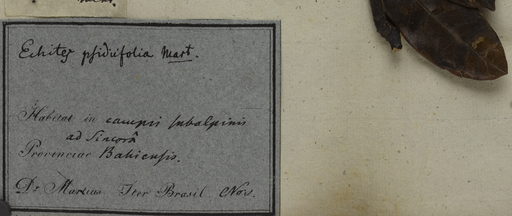 Echites psidiifolia Mart.
Habitat in campis subalpinis
ad Sincorá
Provinciae Bahiensis.
Dr. Martius Iter Brasil. Nov.